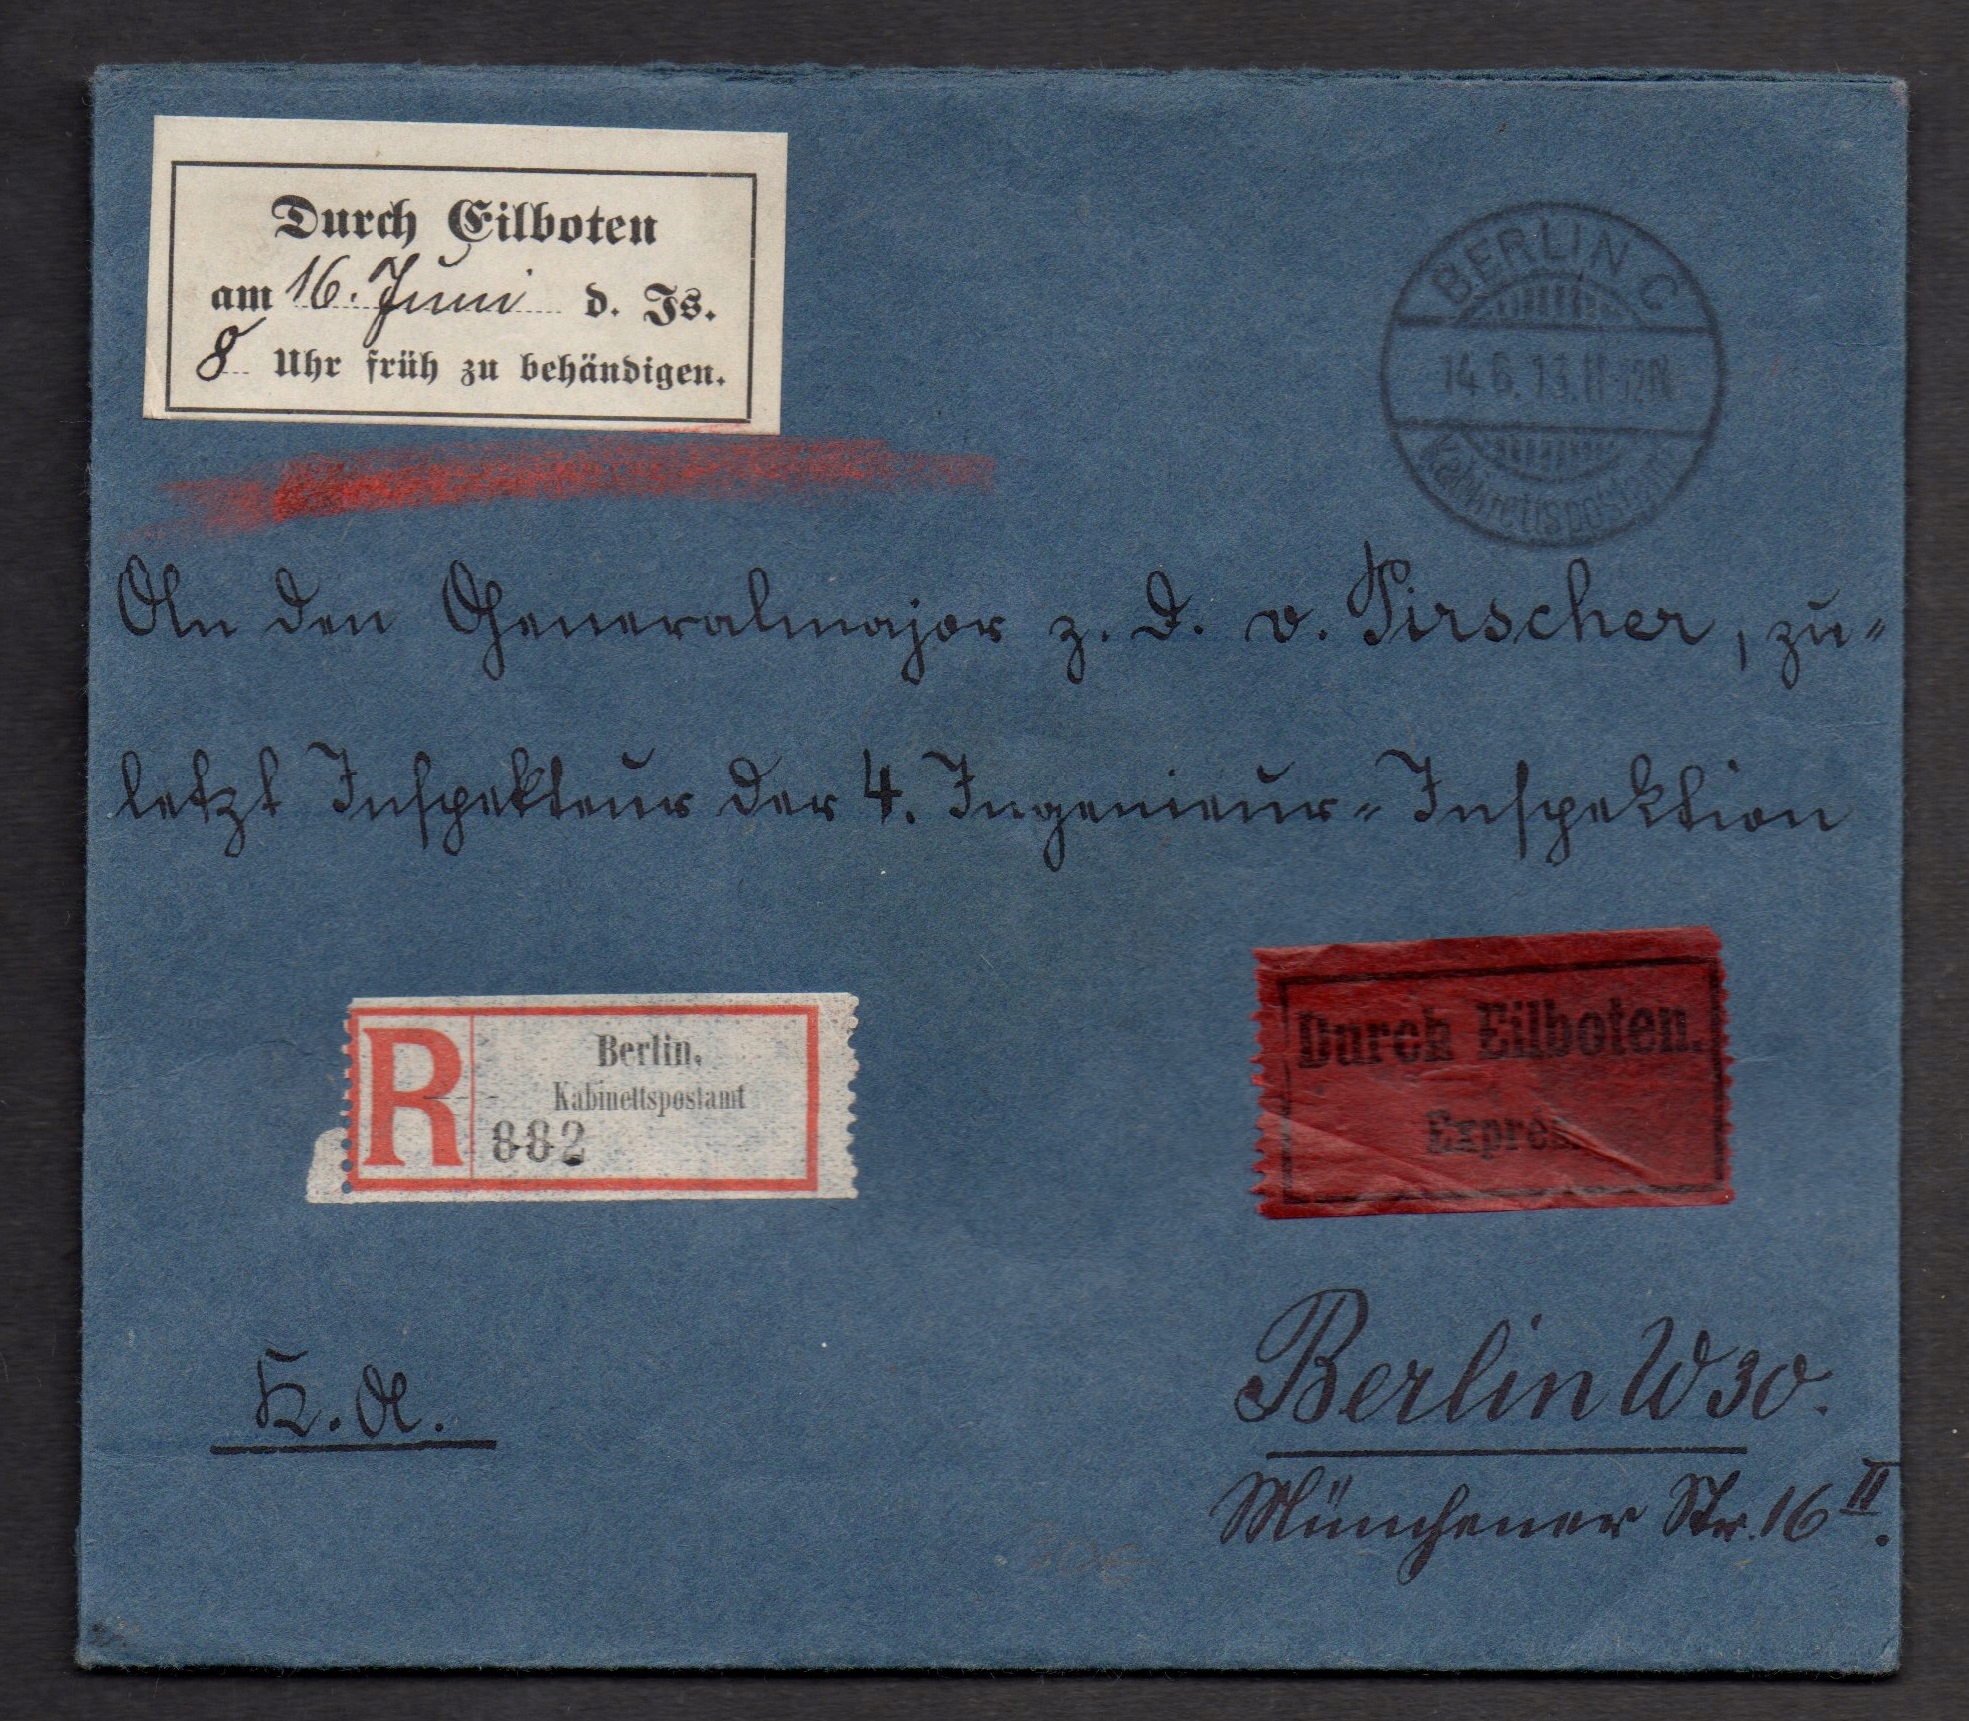 Durch Eilboten
am 16. Juni d. Js.
8 Uhr früh zu behändigen.
BERLIN C
14.6.13.11-12N
Kabinettspostamt
An den Generalmajor z. D. v. Pirscher, zu=
letzt Inspekteur der 4. Ingenieur=Inspektion
R
Berlin,
Kabinettspostamt
882
Durch Eilboten.
Expres
K. A.
Berlin W 30.
Münchener Str. 16 II.